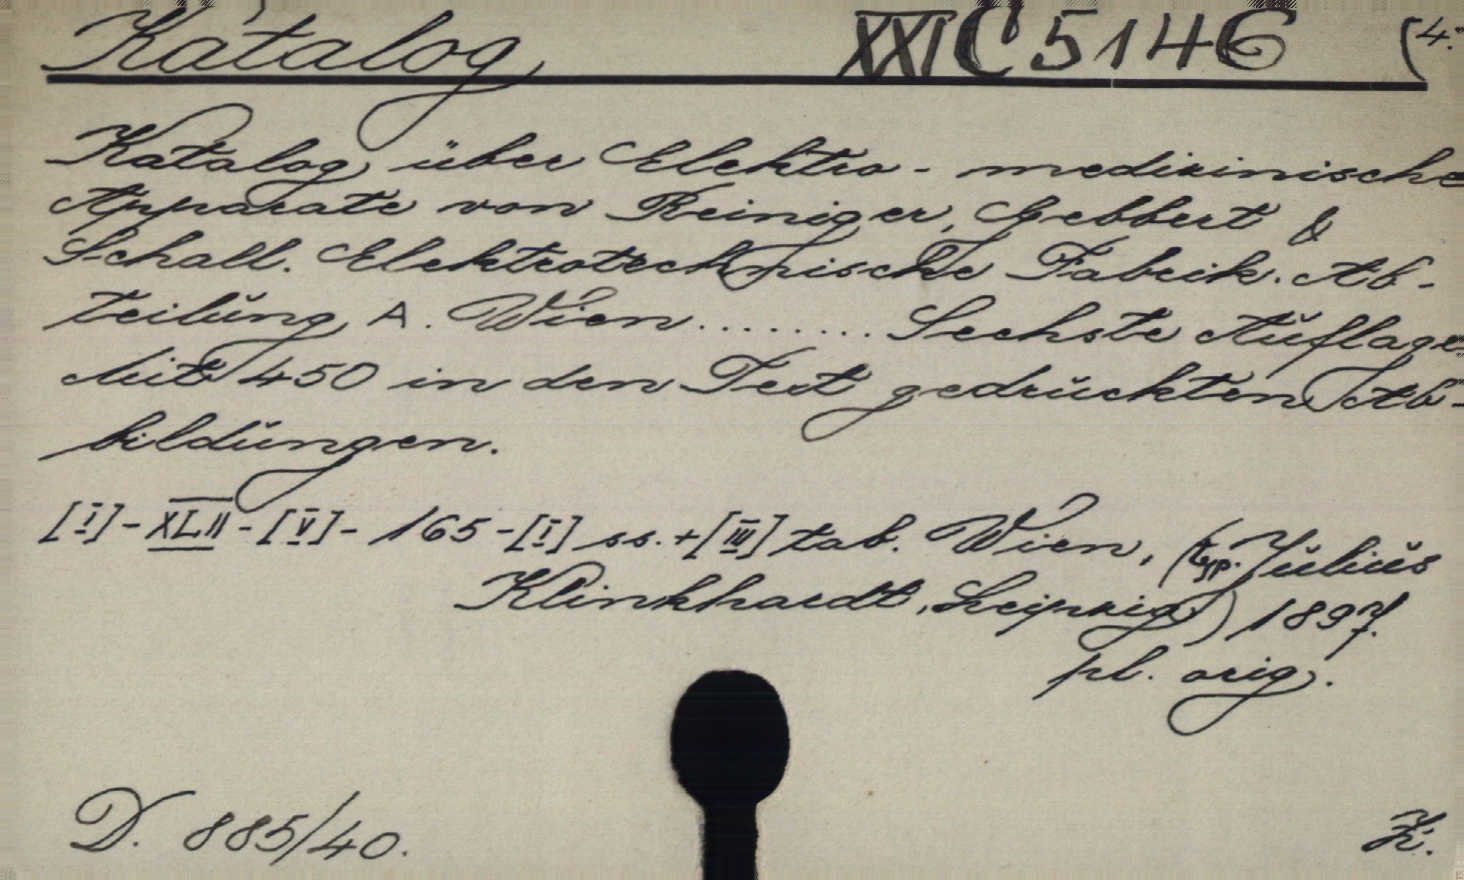 Katalog XXI C 5146 (4.°
Katalog über Elektro-medizinische
Apparate von Reiniger, Gebbert &
Schall. Elektrotechnische Fabrik. Ab-
teilung A. Wien ......... Sechste Auflage.
Mit 450 in den Text gedruckten Ab-
bildungen.
[I]-XLII-[V]-165-[I] ss.+[III] tab. Wien, (typ. Julius
Klinkhardt, Leipzig) 1897.
pl. orig.
D. 885/40.